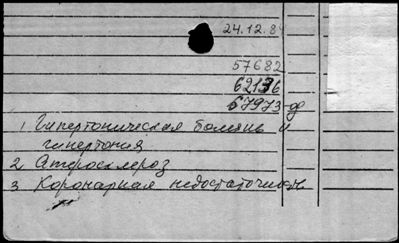 24.12.84
57682
62136
67973 др
1 Гипертоническая болезнь и
гипертония
2 Атеросклероз
3 Коронарная недостаточность